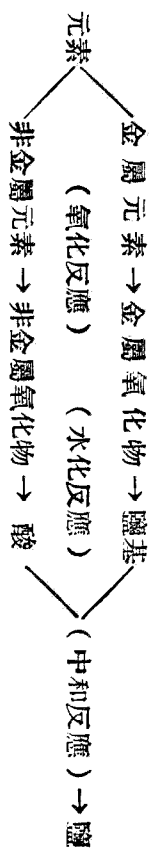 元素
金屬元素→金屬氧化物→鹽基
(氧化反應) (水化反應)
非金屬元素→非金屬氧化物→酸
(中和反應)→鹽